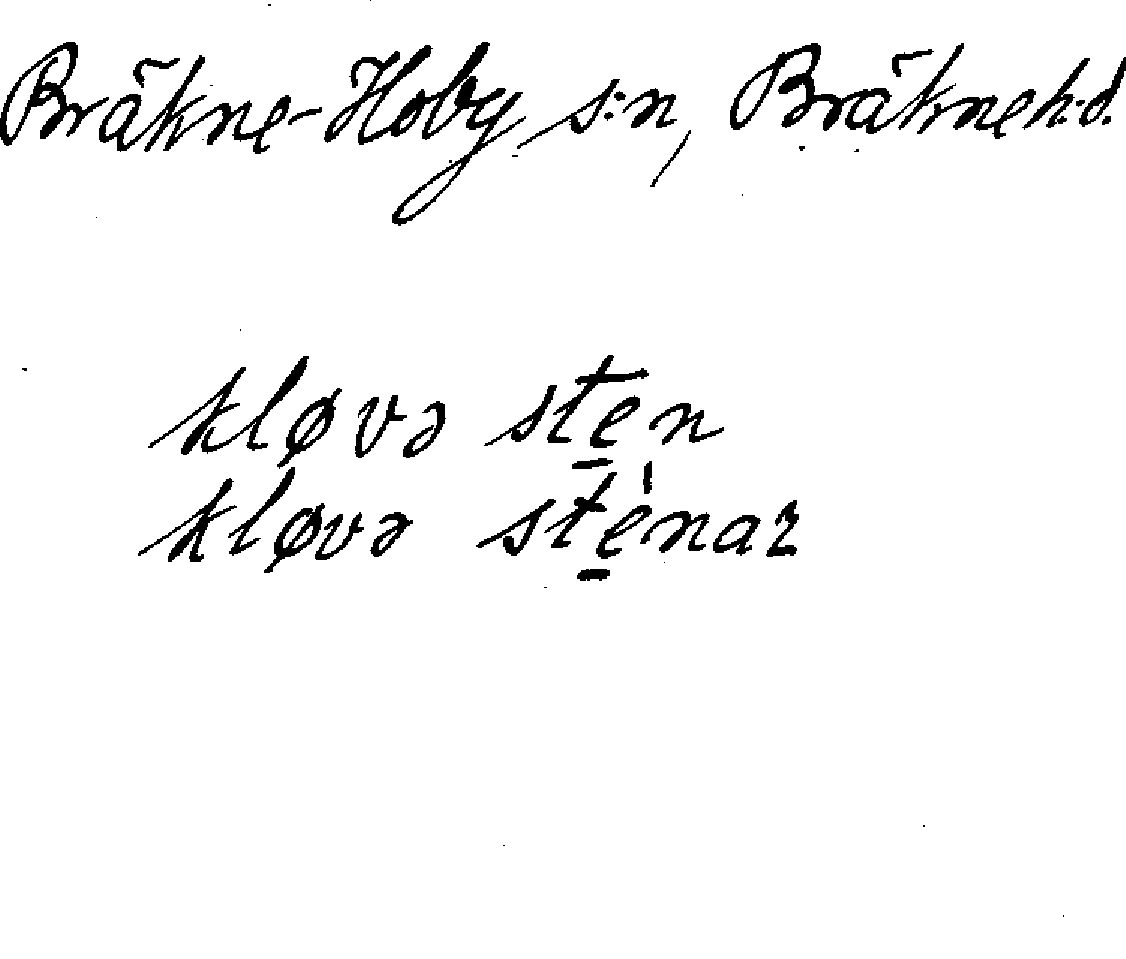 Bräkne-Hoby s:n, Bräkneh:d.
kløvə ste̲n
kløvə stè̲nar